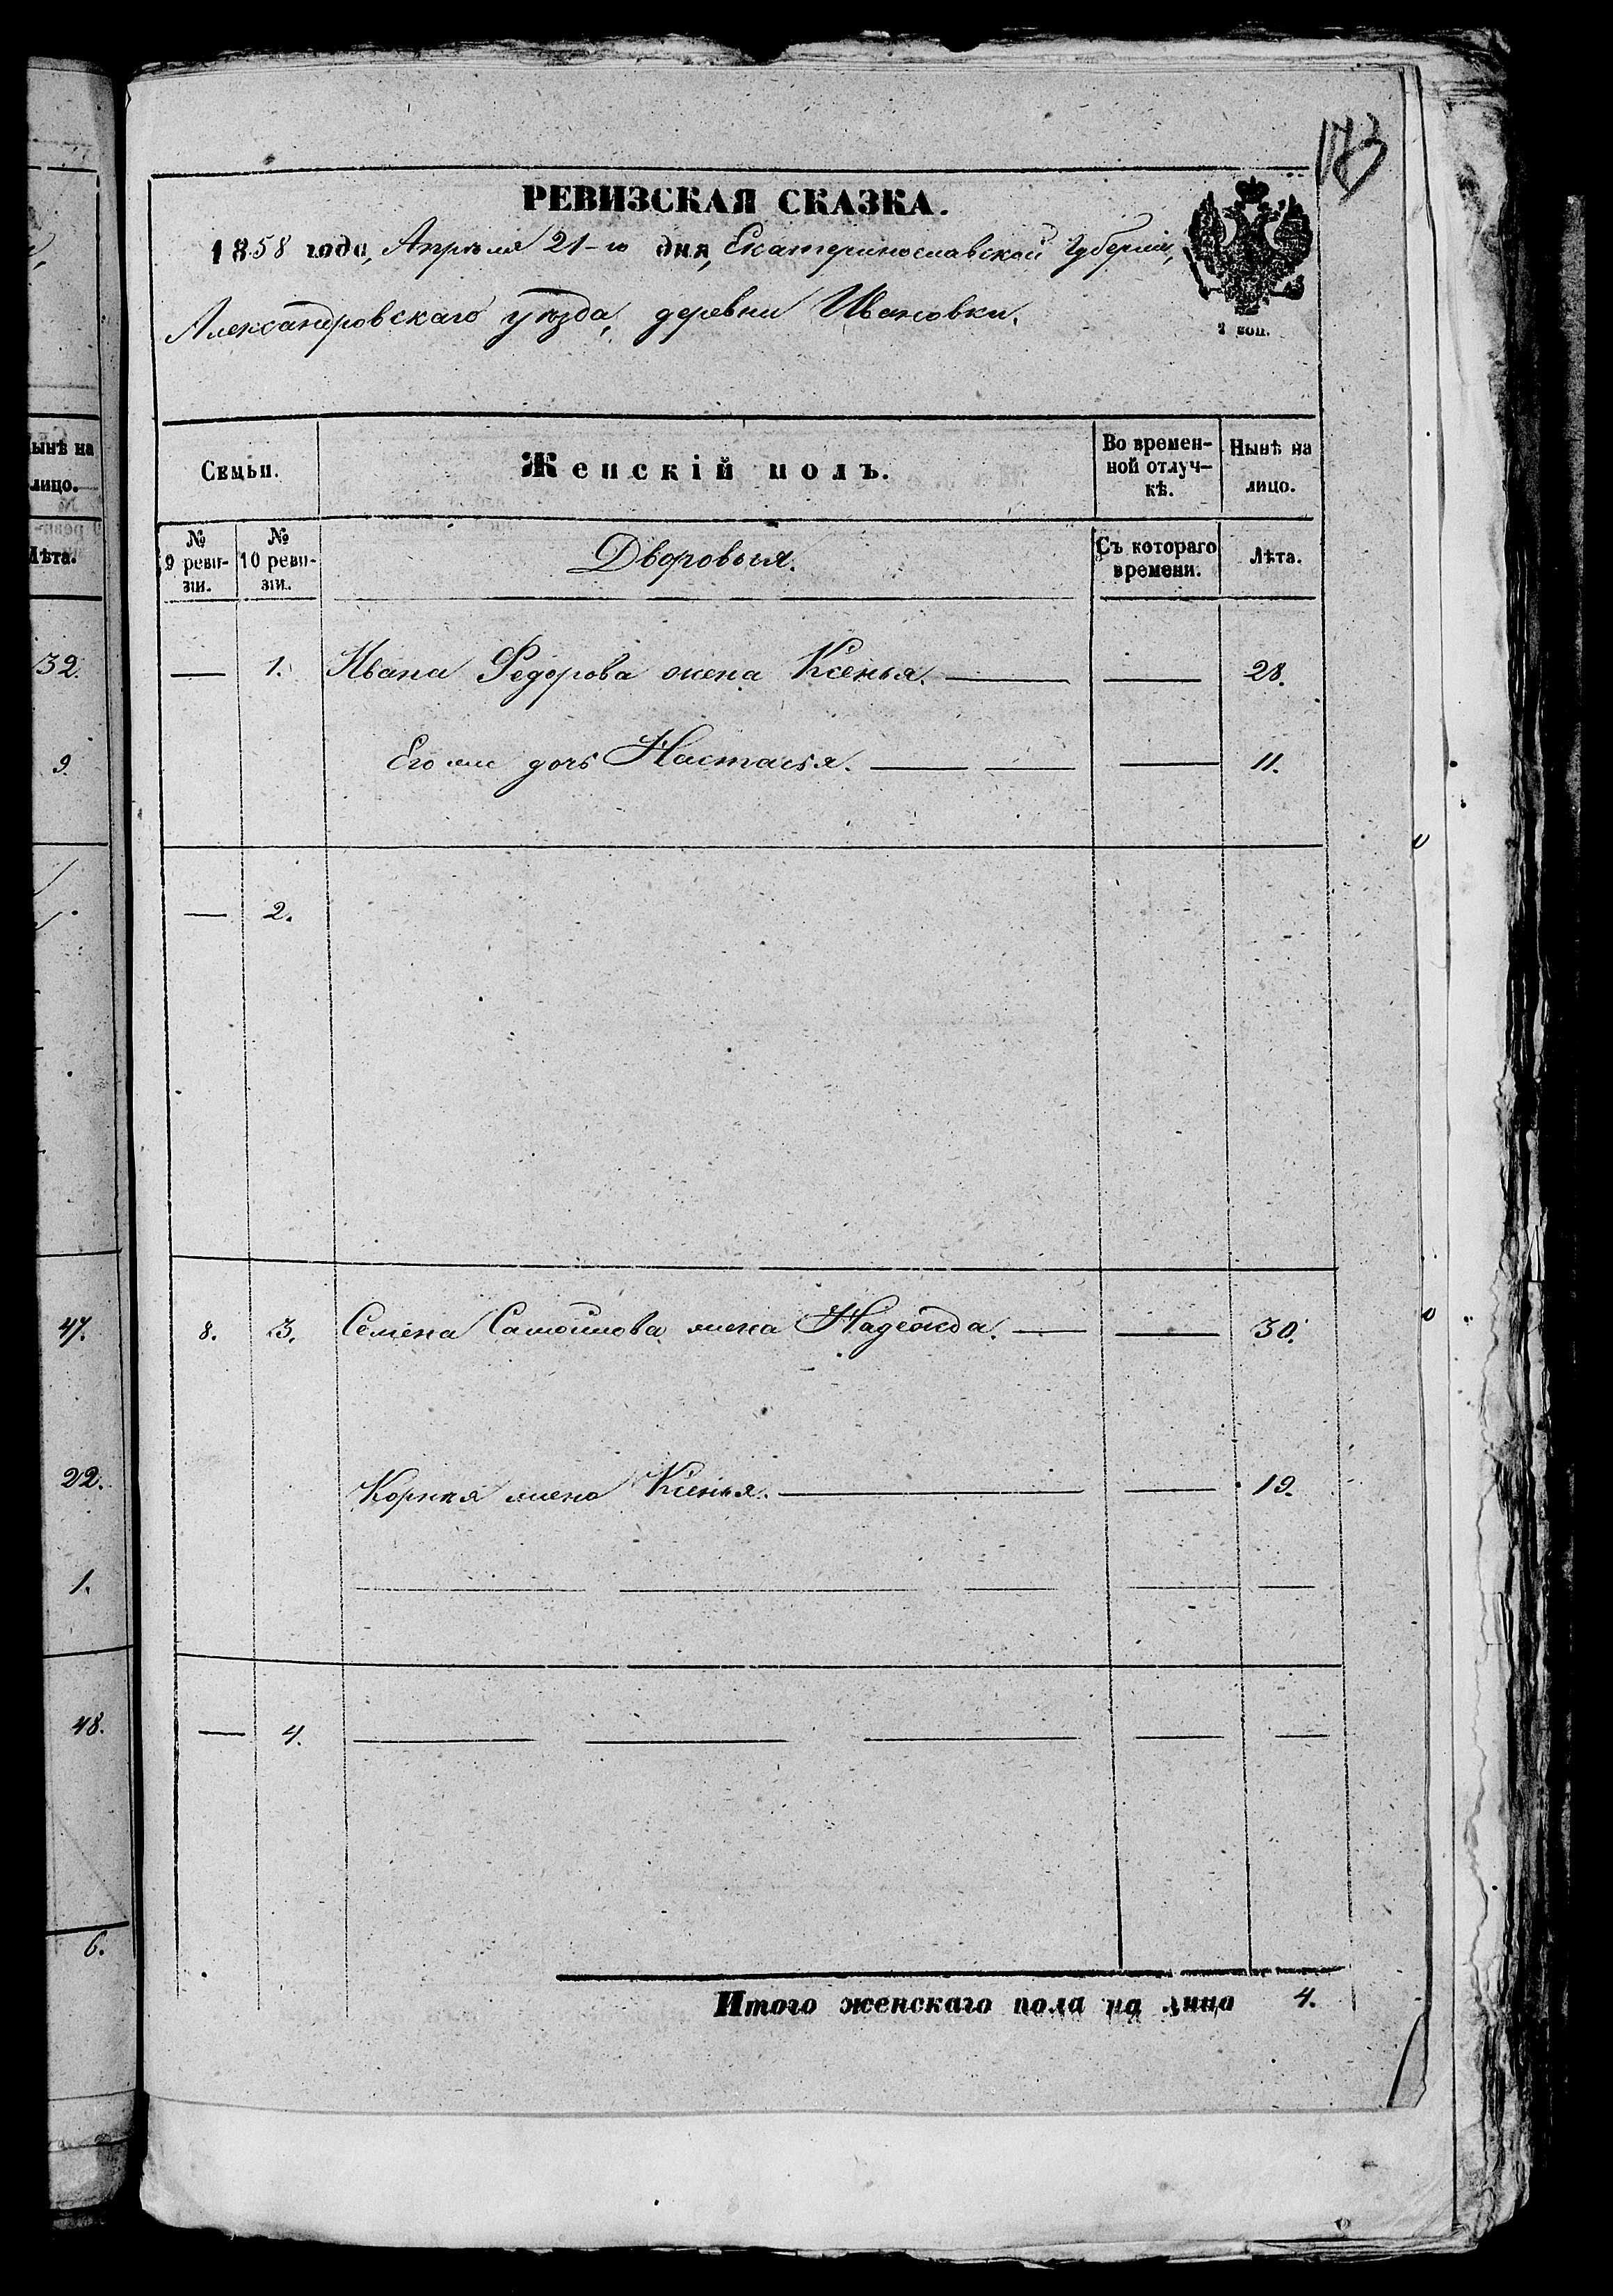 173
РЕВИЗСКАЯ СКАЗКА.
1858 года, Апрѣля 21-го дня, Екатеринославской Губерніи,
Александровскаго уѣзда, деревни Ивановки.
2 коп.
Семьи.
Женскій полъ.
Во времен-
ной отлуч-
кѣ.
Нынѣ на
лицо.
№
9 реви-
зіи.
№
10 реви-
зіи.
Дворовыя.
Съ котораго
времени.
Лѣта.
— 1. Ивана Федорова жена Ксенья. — — 28.
Его же дочь Настасья. — — — 11.
— 2.
8. 3. Семена Самойлова жена Надежда. — — 30.
Корнѣя жена Ксенья. — — 19.
— 4. — — — — —
Итого женскаго пола на лицо 4.
ынѣ на
лицо.
Лѣта.
32.
9.
47.
22.
1.
48.
6.